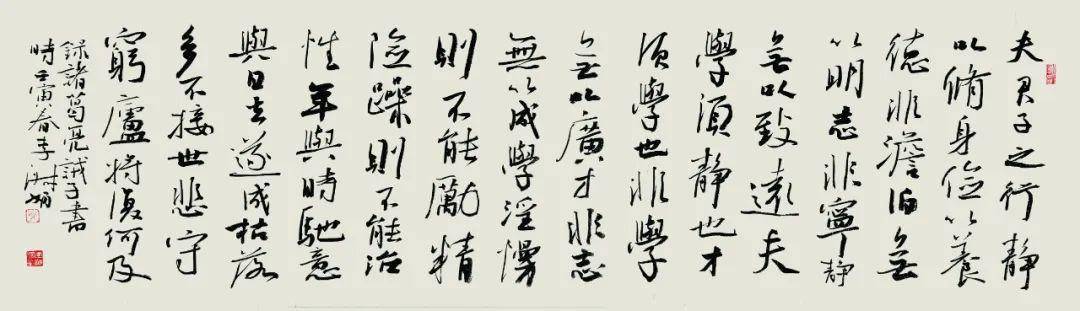 夫君子之行靜
以脩身儉以養
德非澹泊無
以明志非寧靜
無以致遠夫
學須靜也才
須學也非學
無以廣才非志
無以成學淫慢
則不能勵精
險躁則不能治
性年與時馳意
與日去遂成枯落
多不接世悲守
窮廬將復何及
錄諸葛亮誡子書
時壬寅春李